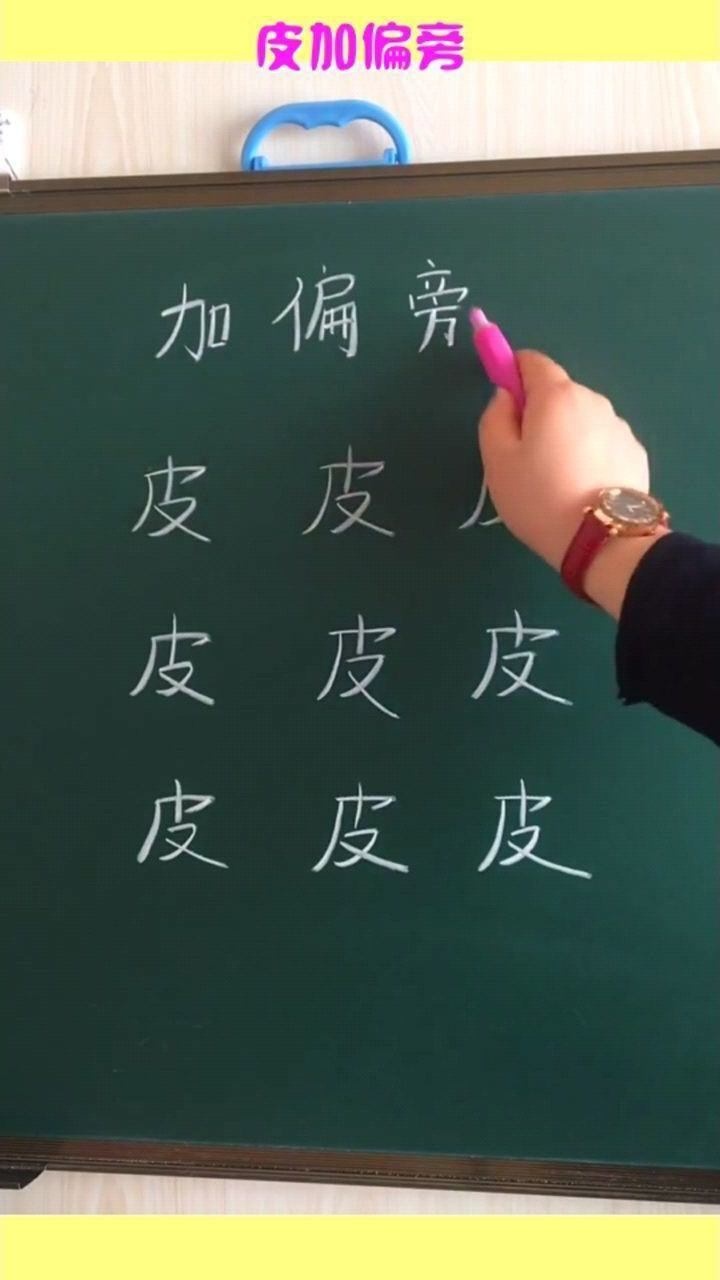 皮加偏旁
加偏旁
皮 皮
皮 皮 皮
皮 皮 皮